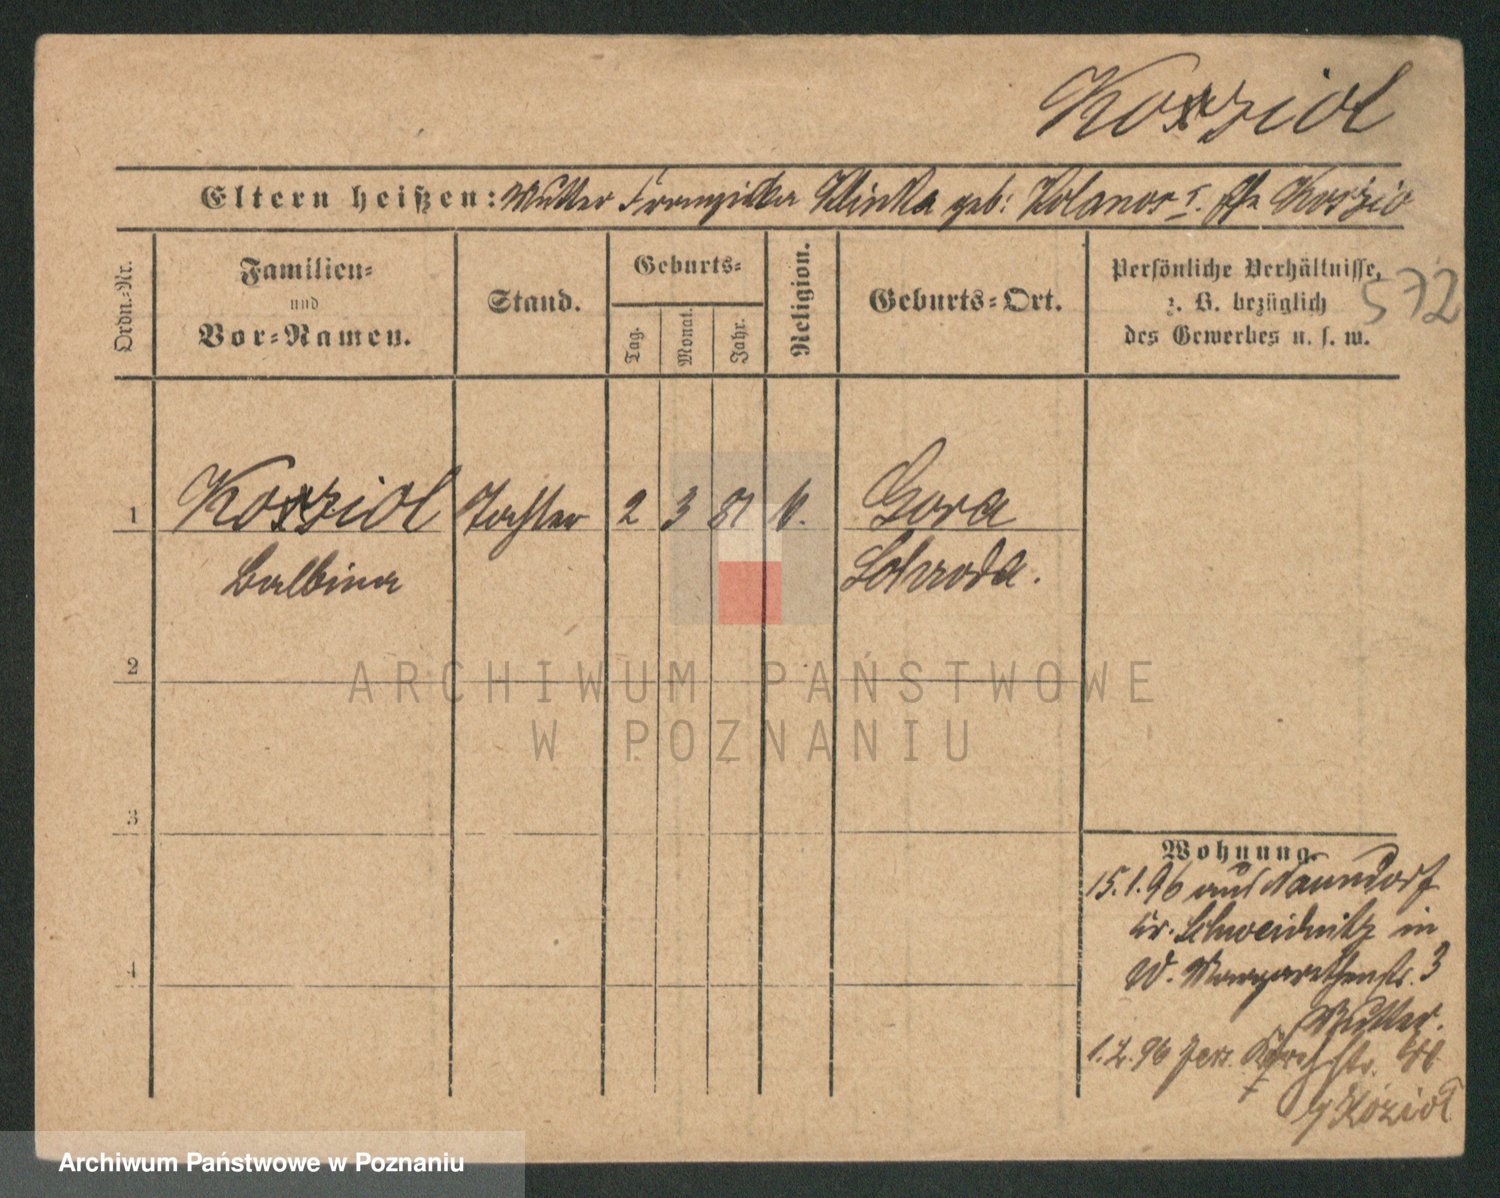 Kosziol
Eltern heißen: Mutter Franziska Klinka geb: Kolanos I. Ehe Koszio
Ordn.-Nr.
Familien-
und
Vor-Namen.
Stand.
Geburts-
Tag.
Monat.
Jahr.
Religion.
Geburts-Ort.
Persönliche Verhältnisse,
z. B. bezüglich
des Gewerbes u. s. w.
572
1 Kosziol Tochter 2 3 81 k. Gora
Balbina Schroda.
2
3
4
Wohnung.
15.1.96 aus Naundorf
Kr. Schweidnitz in
W. Margarethenstr. 3
Mutter.
1.2.96 Jers. Kirchstr. 44
Koziol
ARCHIWUM PAŃSTWOWE
W POZNANIU
Archiwum Państwowe w Poznaniu